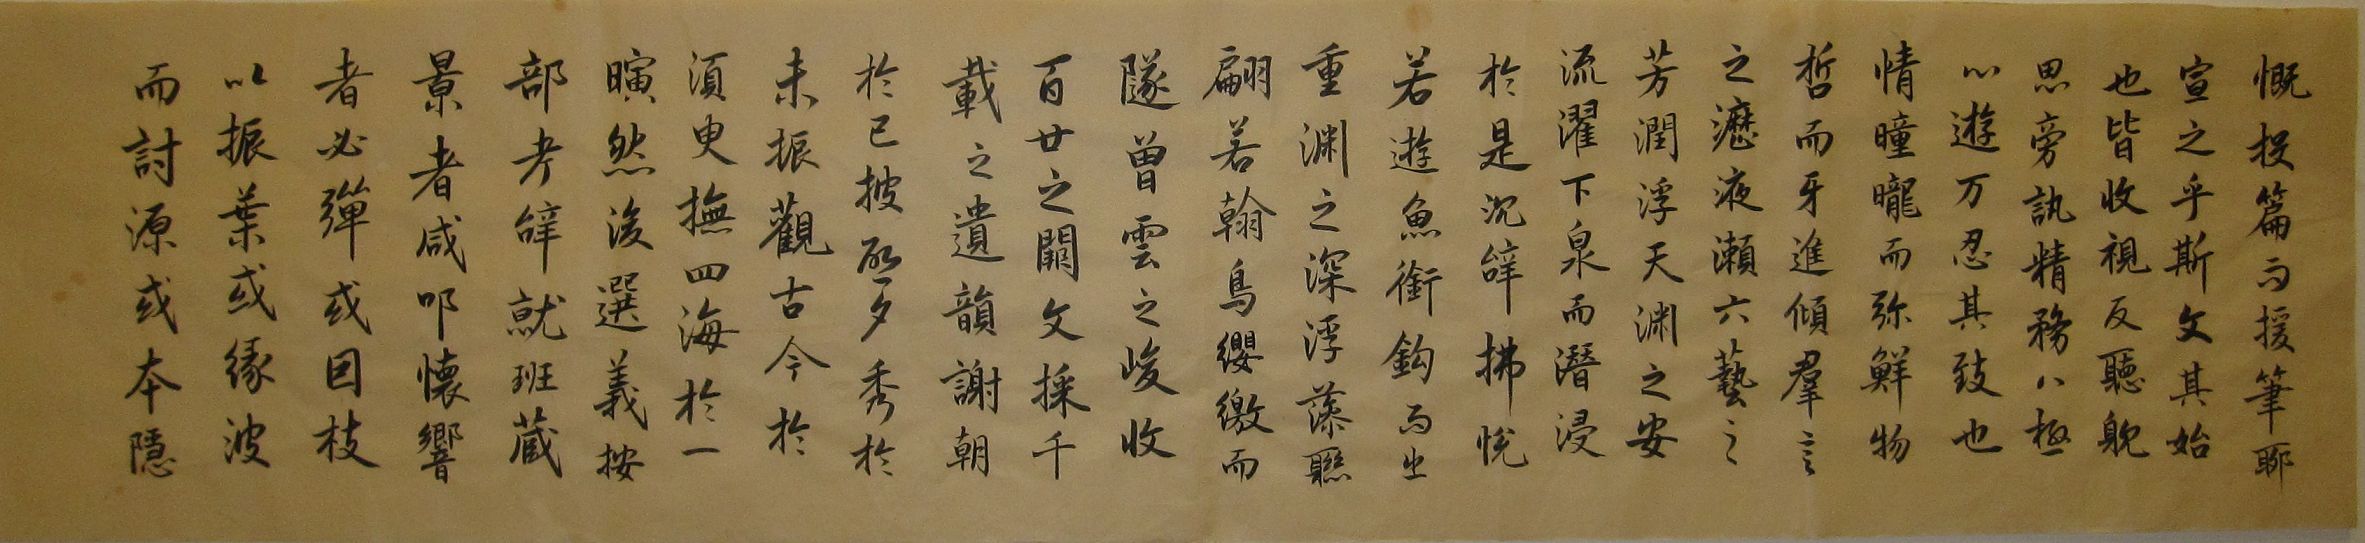 慨投篇而援筆聊
宣之乎斯文其始
也皆收視反聽躭
思旁訊精務八極
心遊万忍其致也
情曈曨而弥鮮物
哲而牙進傾羣言
之瀝液漱六藝之
芳潤浮天渊之安
流濯下泉而潛浸
於是沉辞拂悅
若遊魚銜鈎而出
重渊之深浮藻聯
翩若翰鳥纓繳而
墜曾雲之峻收
百世之闕文採千
載之遺韻謝朝
於已披啓夕秀於
未振觀古今於
須臾撫四海於一
瞚然後選義按
部考辞就班藏
景者咸叩懷響
者必彈或因枝
以振葉或緣波
而討源或本隱